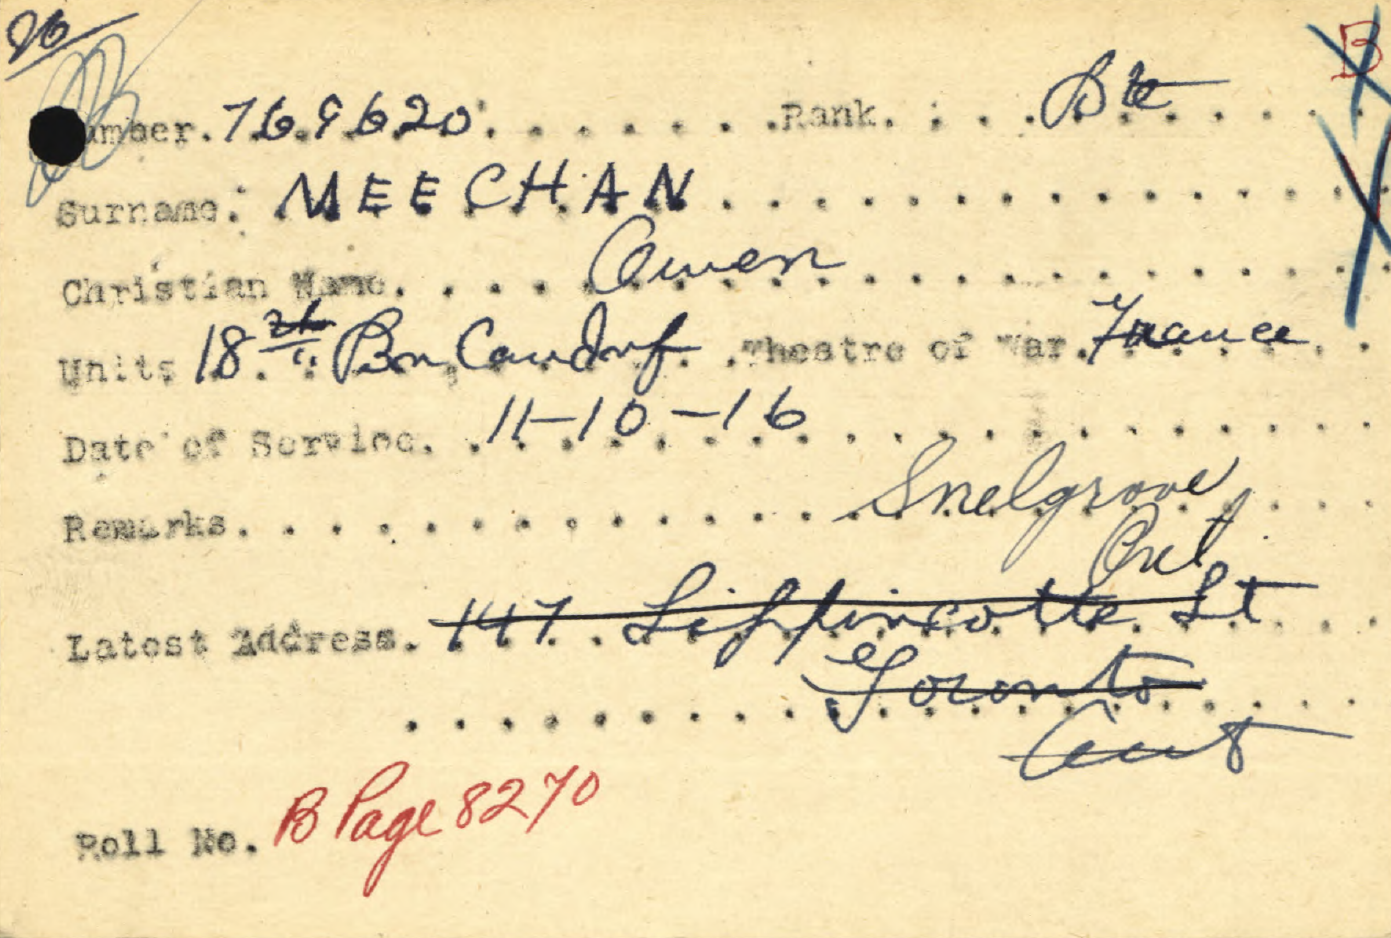 B
Number. 769620. Rank. Pte
Surname. MEECHAN
Christian Name. Owen
Units 18th Bn Can Inf Theatre of War. France
Date of Service. 11-10-16
Remarks. Snelgrove
Ont
Latest Address. 147 Lippincotte St
Toronto
Ont
Roll No. B Page 8270